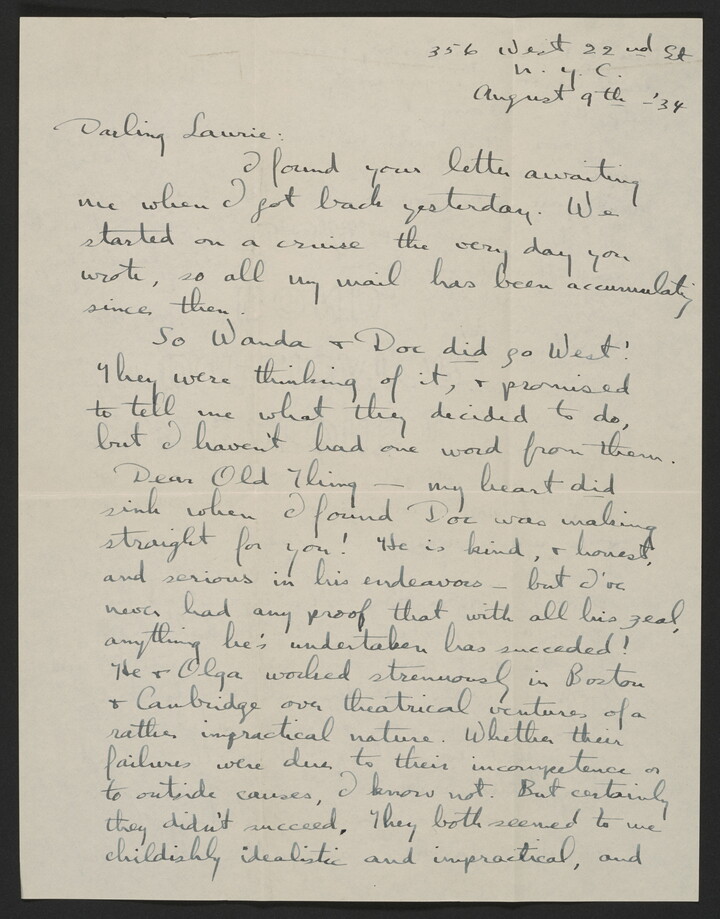 356 West 22nd St
N. Y. C.
August 9th - '34
Darling Laurie:
I found your letter awaiting
me when I got back yesterday. We
started on a cruise the very day you
wrote, so all my mail has been accumulating
since then.
So Wanda + Doc did go West!
They were thinking of it, + promised
to tell me what they decided to do,
but I haven't had one word from them.
Dear Old Thing — my heart did
sink when I found Doc was making
straight for you! He is kind, + honest,
and serious in his endeavors — but I've
never had any proof that with all his zeal,
anything he's undertaken has succeded!
He + Olga worked strenuously in Boston
+ Cambridge over theatrical ventures of a
rather impractical nature. Whether their
failures were due to their incompetence or
to outside causes, I know not. But certainly
they didn't succeed. They both seemed to me
childishly idealistic and impractical, and